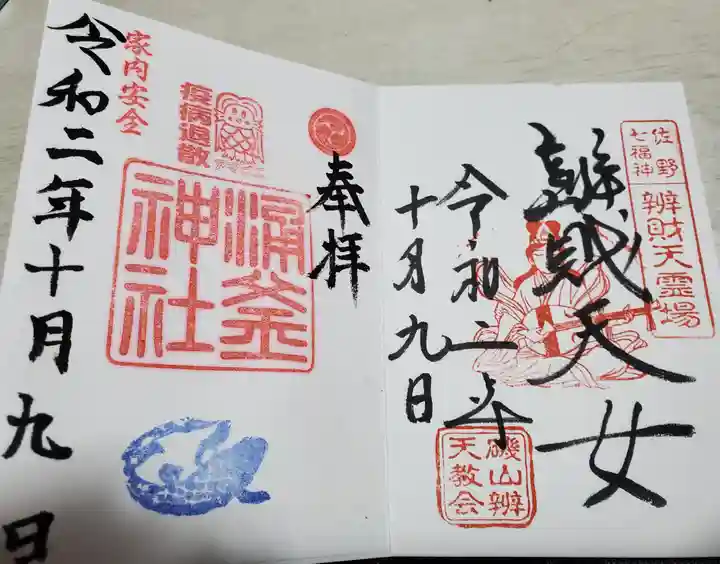 佐野
七福神
辨財天霊場
辨財天女
令和二年
十月九日
磯山辨
天教会
奉拝
涌釜
神社
疫病退散
家内安全
令和二年十月九日